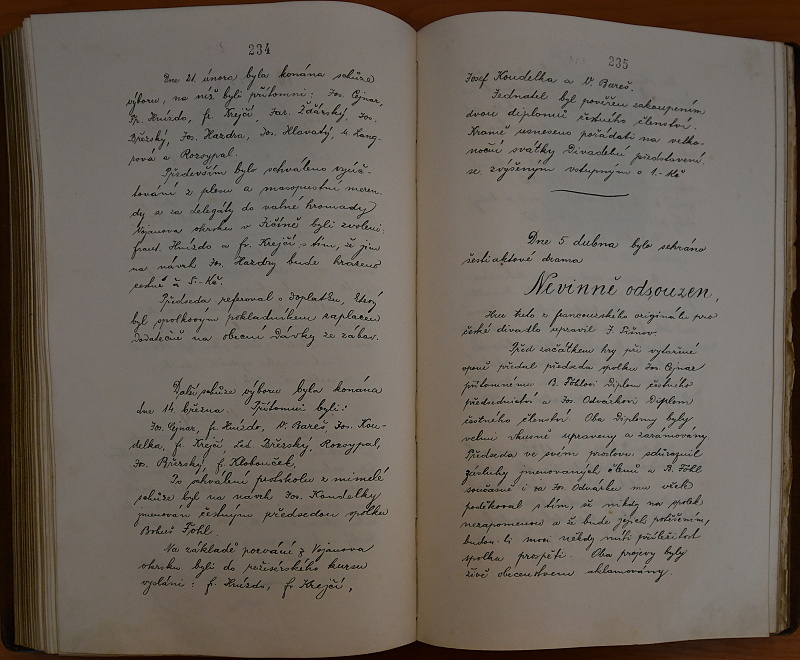 234
Dne 21. února byla konána schůze
výboru, na níž byli přítomni: Jos. Cejnar,
Fr. Hnízdo, fr. Krejčí, Jar. Žďárský, Jos.
Břežský, Jos. Hazdra, Jos. Hlavatý, 
pová a Rozsypal.
Především bylo schváleno vyúč-
tování z plesu a masopustní meren-
dy a za delegáty do valné hromady
Vojanova okrsku v Jičíně byli zvoleni:
frant. Hnízdo a fr. Krejčí s tím, že jim
na návrh Jos. Hazdry bude hrazeno
cestné à 5.- Kč.
Předseda referoval o doplatku, který
byl spolkovým pokladníkem zaplacen
dodatečně na obecní dávky ze zábav.
Další schůze výboru byla konána
dne 14. března. Přítomni byli:
Jos. Cejnar, fr. Hnízdo, V. Bareš, Jos. Kou-
delka, fr. Krejčí, Lad. Břežský, Rozsypal,
Jos. Břežský, f. Klobouček.
Po schválení protokolu z minulé
schůze byl na návrh Jos. Koudelky
jmenován čestným předsedou spolku
Bohuš Föhl.
Na základě pozvání z Vojanova
okrsku byli do režisérského kursu
vysláni: fr. Hnízdo, fr. Krejčí,
235
Josef Koudelka a V. Bareš.
Jednatel byl pověřen zakoupením
dvou diplomů čestného členství.
Kromě usneseno pořádati na veliko-
noční svátky Divadelní představení
se zvýšeným vstupným o 1.- Kč
Dne 5. dubna bylo sehráno
šestiaktové drama
Nevinně odsouzen,
Hru tuto z francouzského originálu pro
české divadlo upravil J. 
Před začátkem hry při vytažené
oponě předal předseda spolku Jos. Cejnar
přítomnému B. Föhlovi Diplom čestného
předsednictví a Jos. Odvárkovi Diplom
čestného členství. Oba Diplomy byly
velmi vkusně upraveny a zarámovány.
Předseda ve svém proslovu zdůraznil
zásluhy jmenovaných členů a B. Föhl
současně i za Jos. Odvárku mu vřele
poděkoval s tím, že nikdy na spolek
nezapomenou a že bude jejich potěšením,
budou-li moci někdy míti příležitost
spolku prospěti. Oba projevy byly
živě obecenstvem aklamovány.